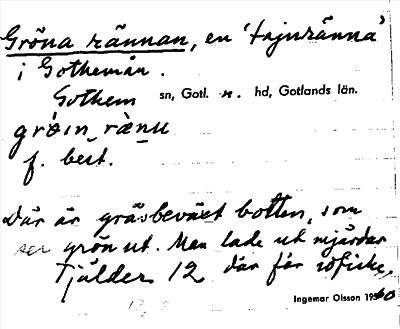 Gröna rännan, en 'tajnränna'
i Gothemån.
Gothem sn, Gotl. n. hd, Gotlands län.
gröin rænu
f. best.
Där är gräsbeväxt botten, som
ser grön ut. Man lade ut mjärdar
Tjälder 12 där för idfiske.
Ingemar Olsson 1960